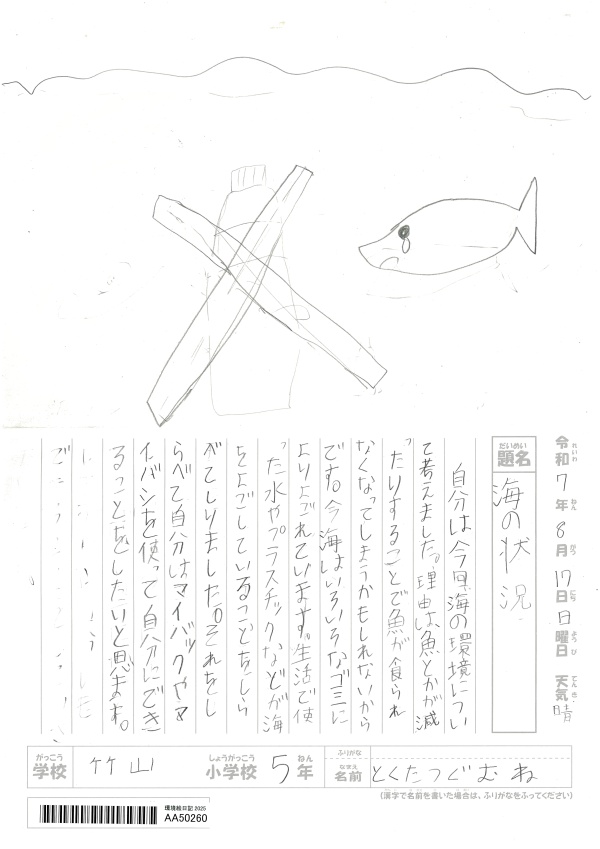 令和7年8月17日日曜日 天気晴
れいわ ねん がつ にち ようび てんき
だいめい
題名 海の状況
自分は今回海の環境につい
て考えました。理由は、魚とかが減
ったりすることで魚が食られ
なくなってしまうかもしれないから
です。今海はいろいろなゴミに
よりよごれています。生活で使
った水やプラスチックなどが海
をよごしていることをしら
べてしりました。それをし
らべて自分はマイバックやマ
イバシを使って自分にでき
ることをしたいと思ます。
がっこう しょうがっこう ねん ふりがな
学校 竹山 小学校 5年 なまえ 名前 とくたつぐむね
(漢字で名前を書いた場合は、ふりがなをふってください)
環境絵日記2025
AA50260